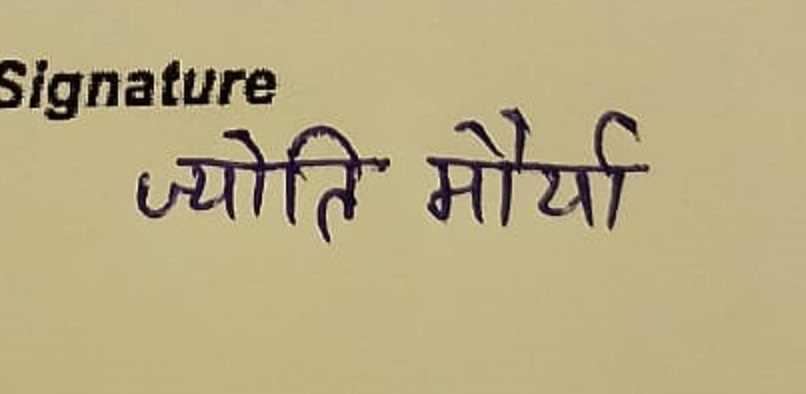 Signature
ज्योति मौर्या